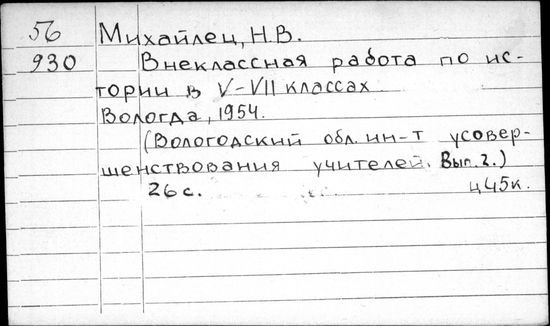 56 Михайлец, Н.В.
930 Внеклассная работа по ис-
тории в V-VII классах
Вологда, 1954.
(Вологодский обл. ин-т усовер-
шенствования учителей. Вып. 2.)
26 с. ц 45к.